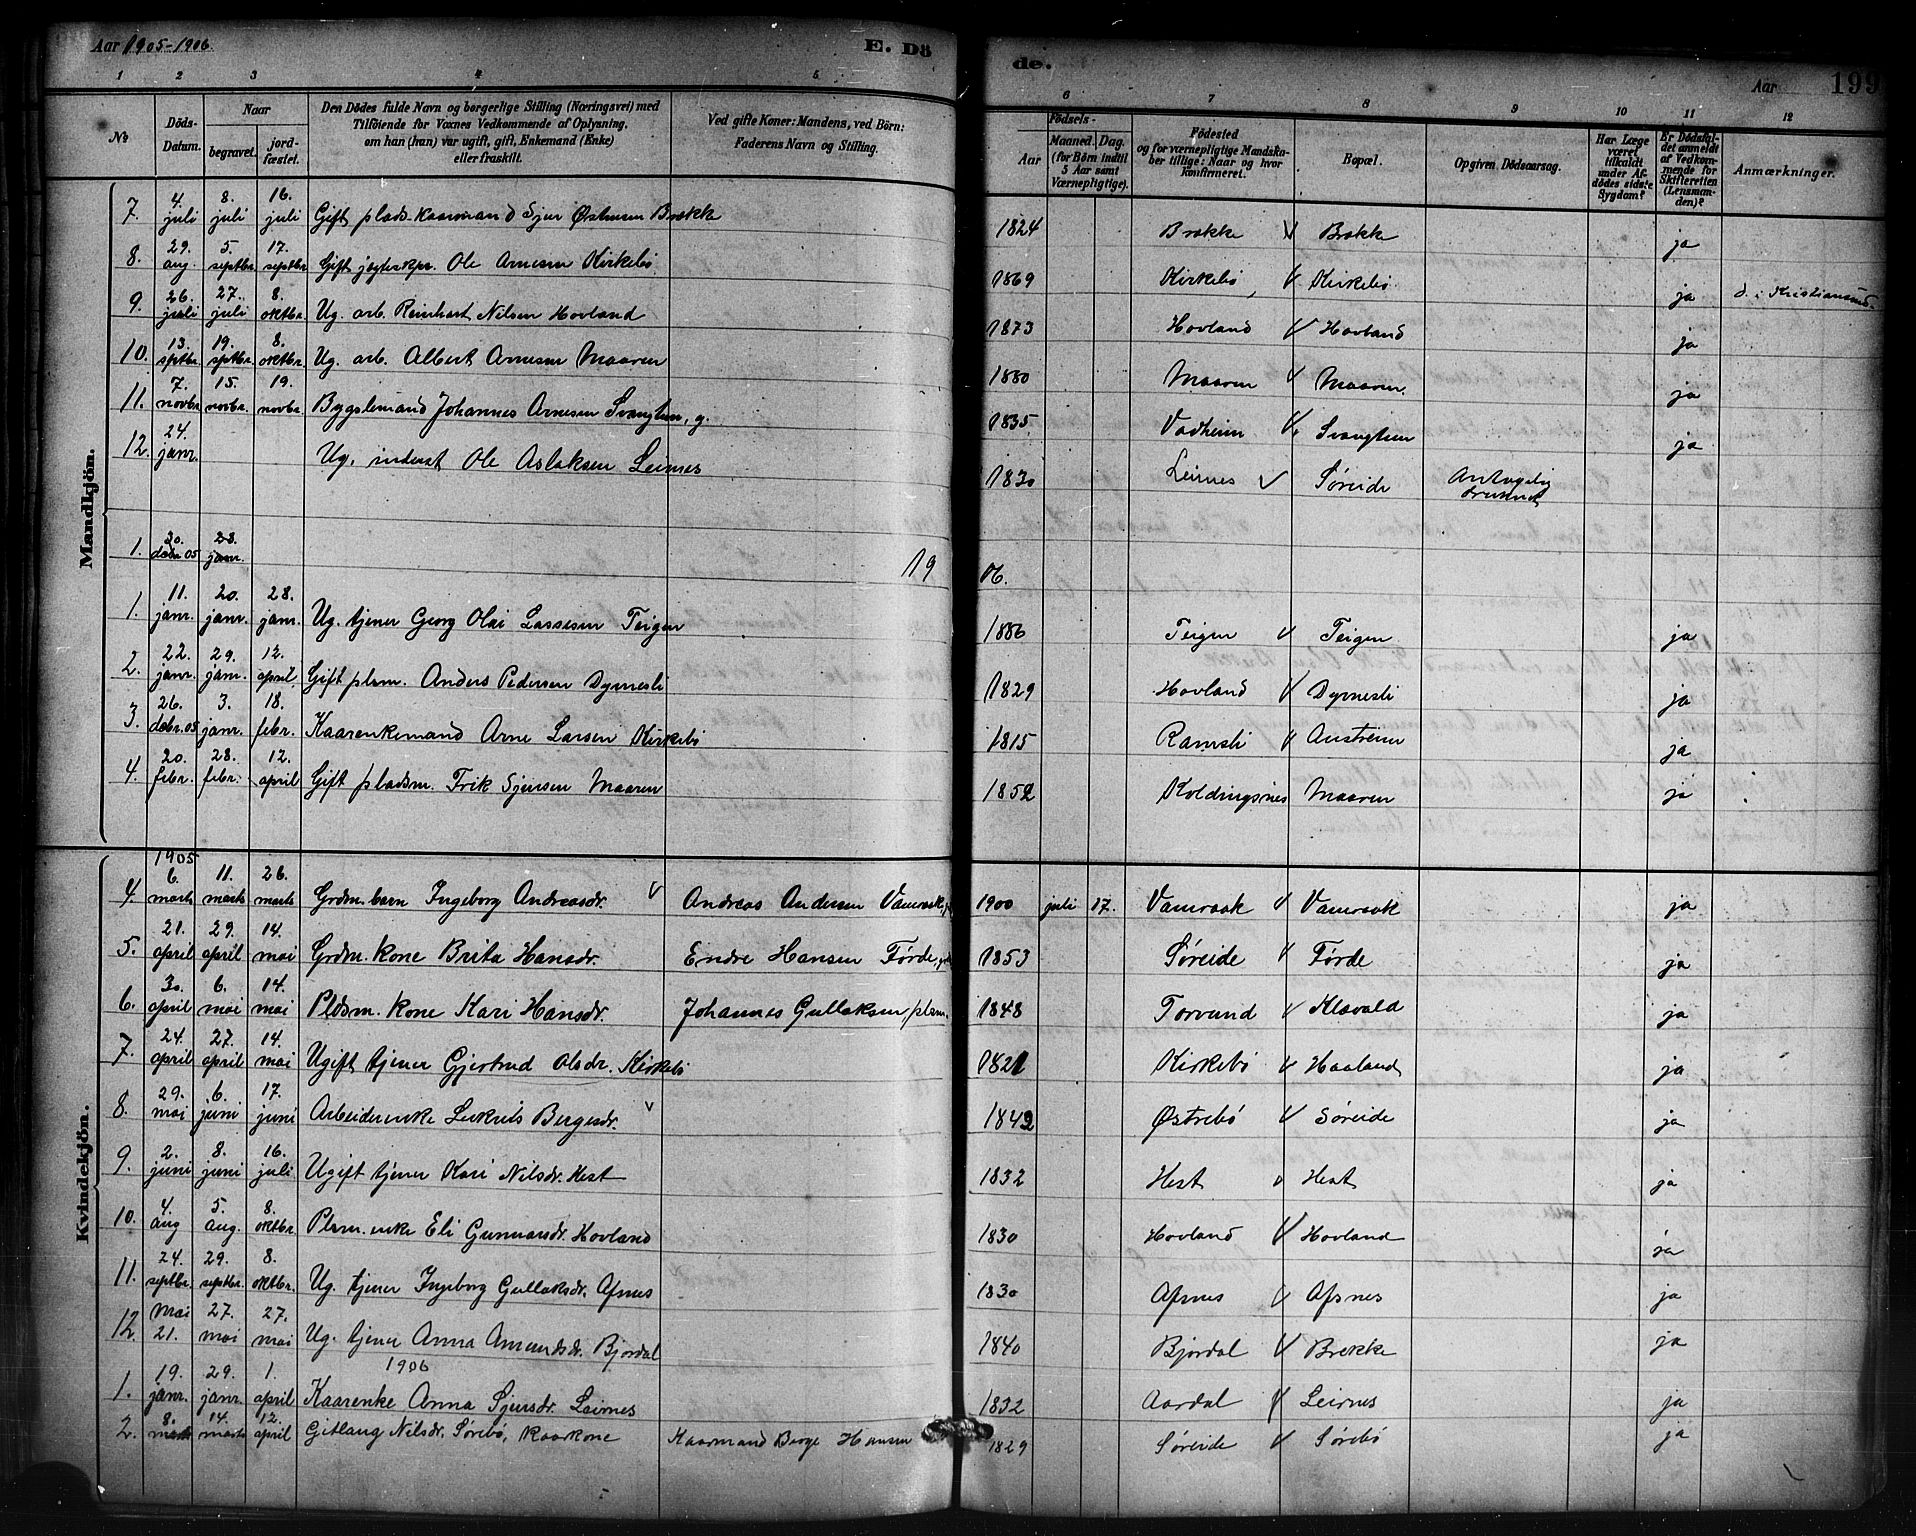 Aar 1905-1906.
E. Dö
de.
Aar
199
1 2 3 4 5
6 7 8 9 10 11 12
No
Döds-Datum.
Naar
begravet.
jordfæstet.
Den Dödes fulde Navn og borgerlige Stilling (Næringsvei) med
Tilföiende for Voxnes Vedkommende af Oplysning,
om han (hun) var ugift, gift, Enkemand (Enke)
eller fraskilt.
Ved gifte Koner: Mandens, ved Børn:
Faderens Navn og Stilling.
Födsels-
Aar
Maaned. Dag.
(for Börn indtil
5 Aar samt
Værnepligtige).
Födested
og for værnepligtige Mandskaber tillige: Naar og hvor
konfirmeret.
Bopæl.
Opgiven Dödsaarsag.
Har Læge
været
tilkaldt
under Afdödes sidste
Sygdom?
Er Dödsfaldet anmeldt
af Vedkommende for
Skifteretten
(Lensmanden)?
Anmærkninger.
Mandkjön.
7. 4. juli 8. juli 16. juli Gift plads-kaarmand Sjur Østensen Brække 1824 Brække Brække ja
8. 29. aug. 5. septbr. 17. septbr. Gift jægteskpr. Ole Arnesen Kirkebö 1869 Kirkebö Kirkebö ja d. i Kristiansund.
9. 26. juli 27. juli 8. oktbr. Ug. arb. Reinhart Nilsen Hovland 1873 Hovland Hovland ja
10. 13. sptbr. 19. sptbr. 8. oktbr. Ug. arb. Albert Arnesen Maaren 1880 Maaren Maaren. ja
11. 7. novbr. 15. novbr. 19. novbr. Bygslemand Johannes Arnesen Svangtun, g. 1835 Vadheim Svangtun ja
12. 24. janr. Ug. inderst Ole Aslaksen Leirnes 1830 Leirnes Søreide Antagelig druknet
1. 30. decbr 05 28. janr.
19 06.
1. 11. janr. 20. janr. 28. janr. Ug. tjener Georg Olai Lassesen Teigen 1886 Teigen Teigen ja
2. 22. janr. 29. janr. 12. april Gift plsm. Anders Pedersen Dyrnesli 1829 Hovland Dyrnesli ja
3. 26. decbr. 05 3. janr. 18. febr. Kaarenkemand Arne Larsen Kirkebö 1815 Ramsli Austreim ja
4. 20. febr. 28. febr. 12. april Gift pladsm. Erik Sjursen Maaren 1852 Koldingsnes Maaren ja
Kvindekjön.
1905
4. 6. marts 11. marts 26. marts Grdm. barn Ingeborg Andreasdr. Andreas Andersen 1900 juli 17. ja
5. 21. april 29. april 14. mai Grdm. kone Brita Hansdr. Endre Hansen Førde, 1853 Søreide Førde ja
6. 30. april 6. mai 14. mai Pldsm. kone Kari Hansdr. Johannes Gullaksen, plsm. 1848 Torvund Klævold ja
7. 24. april 27. april 14. mai Ugift tjener Gjertrud Olsdr. Kirkebö 1821 Kirkebö Haaland ja
8. 29. mai 6. juni 17. juni Arbeiderenke Lukris Bergesdr. 1842 Østrebö Søreide ja
9. 2. juni 8. juni 16. juli Ugift tjener Kari Nilsdr. Hest 1832 Hest Hest ja
10. 4. aug 5. aug. 8. oktbr. Plsm. enke Eli Gunnarsdr. Hovland 1830 Hovland Hovland ja
11. 24. septbr. 29. septbr. 8. oktbr. Ug. tjener Ingeborg Gullaksdr. Afsnes 1830 Afsnes Afsnes ja
12. mai 21. 27. mai 27. mai Ug. tjener Anna Amundsdr. Bjordal 1840 Bjordal Brekke ja
1906
1. 19. janr. 29. janr. 1. april Kaarenke Anna Sjursdr. Leirnes 1832 Aardal Leirnes ja
2. 8. marts 14. marts 12. april Gitlaug Nilsdr. Sørebö, kaarkone Kaarmand Berge Hansen 1829 Søreide Sørebö ja